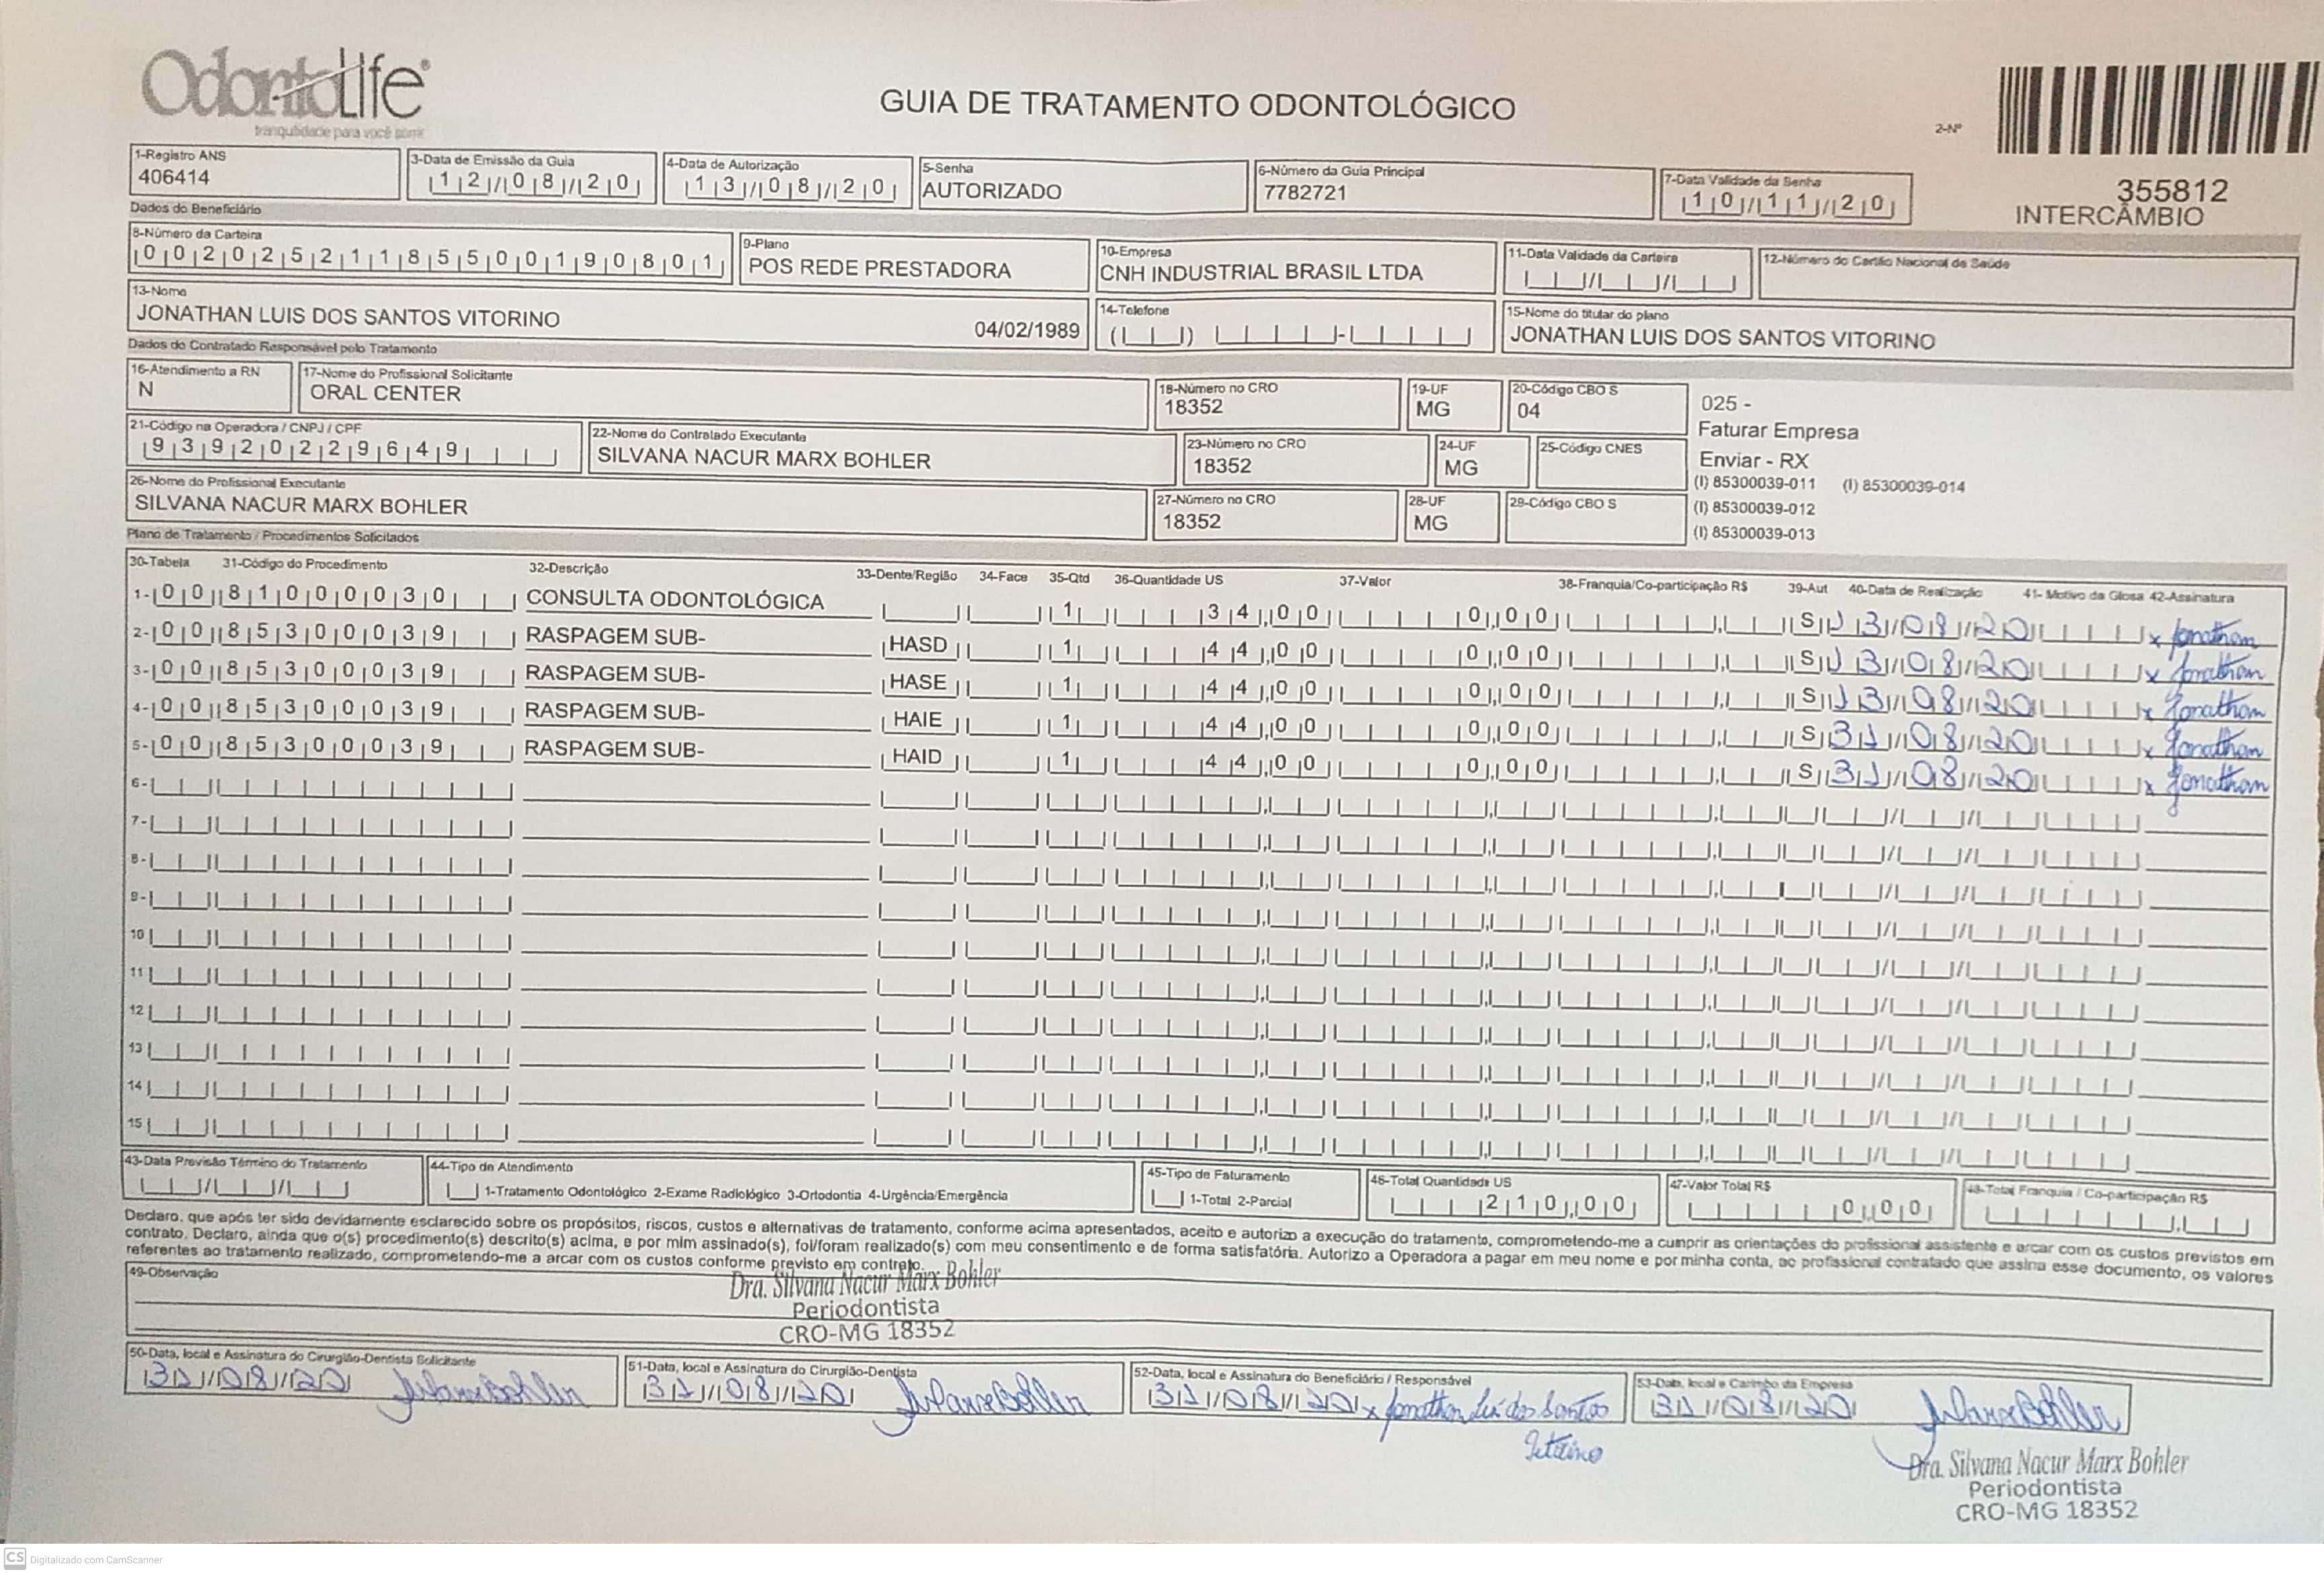 OdontoLife®
tranquilidade para você sorrir
GUIA DE TRATAMENTO ODONTOLÓGICO
2-Nº
355812
INTERCÂMBIO
1-Registro ANS
406414
3-Data de Emissão da Guia
12/08/20
4-Data de Autorização
13/08/20
5-Senha
AUTORIZADO
6-Número da Guia Principal
7782721
7-Data Validade da Senha
10/11/20
Dados do Beneficiário
8-Número da Carteira
00202521185500190801
9-Plano
POS REDE PRESTADORA
10-Empresa
CNH INDUSTRIAL BRASIL LTDA
11-Data Validade da Carteira
12-Número do Cartão Nacional de Saúde
13-Nome
JONATHAN LUIS DOS SANTOS VITORINO 04/02/1989
14-Telefone
15-Nome do titular do plano
JONATHAN LUIS DOS SANTOS VITORINO
Dados do Contratado Responsável pelo Tratamento
16-Atendimento a RN
N
17-Nome do Profissional Solicitante
ORAL CENTER
18-Número no CRO
18352
19-UF
MG
20-Código CBO S
04
025 -
Faturar Empresa
Enviar - RX
(I) 85300039-011 (I) 85300039-014
(I) 85300039-012
(I) 85300039-013
21-Código na Operadora / CNPJ / CPF
93920229649
22-Nome do Contratado Executante
SILVANA NACUR MARX BOHLER
23-Número no CRO
18352
24-UF
MG
25-Código CNES
26-Nome do Profissional Executante
SILVANA NACUR MARX BOHLER
27-Número no CRO
18352
28-UF
MG
29-Código CBO S
Plano de Tratamento / Procedimentos Solicitados
30-Tabela 31-Código do Procedimento 32-Descrição 33-Dente/Região 34-Face 35-Qtd 36-Quantidade US 37-Valor 38-Franquia/Co-participação R$ 39-Aut 40-Data de Realização 41- Motivo da Glosa 42-Assinatura
1- 00 81000030 CONSULTA ODONTOLÓGICA 1 34,00 0,00 S 13/08/20 x Jonathan
2- 00 85300039 RASPAGEM SUB- HASD 1 44,00 0,00 S 13/08/20 x Jonathan
3- 00 85300039 RASPAGEM SUB- HASE 1 44,00 0,00 S 13/08/20 x Jonathan
4- 00 85300039 RASPAGEM SUB- HAIE 1 44,00 0,00 S 31/08/20 x Jonathan
5- 00 85300039 RASPAGEM SUB- HAID 1 44,00 0,00 S 31/08/20 x Jonathan
6-
7-
8-
9-
10
11
12
13
14
15
43-Data Previsão Término do Tratamento
44-Tipo de Atendimento
1-Tratamento Odontológico 2-Exame Radiológico 3-Ortodontia 4-Urgência/Emergência
45-Tipo de Faturamento
1-Total 2-Parcial
46-Total Quantidade US
210,00
47-Valor Total R$
0,00
48-Total Franquia / Co-participação R$
Declaro, que após ter sido devidamente esclarecido sobre os propósitos, riscos, custos e alternativas de tratamento, conforme acima apresentados, aceito e autorizo a execução do tratamento, comprometendo-me a cumprir as orientações do profissional assistente e arcar com os custos previstos em
contrato. Declaro, ainda que o(s) procedimento(s) descrito(s) acima, e por mim assinado(s), foi/foram realizado(s) com meu consentimento e de forma satisfatória. Autorizo a Operadora a pagar em meu nome e por minha conta, ao profissional contratado que assina esse documento, os valores
referentes ao tratamento realizado, comprometendo-me a arcar com os custos conforme previsto em contrato.
49-Observação
Dra. Silvana Nacur Marx Bohler
Periodontista
CRO-MG 18352
50-Data, local e Assinatura do Cirurgião-Dentista Solicitante
31/08/20
51-Data, local e Assinatura do Cirurgião-Dentista
31/08/20
52-Data, local e Assinatura do Beneficiário / Responsável
31/08/20 x Jonathan Luis dos Santos
53-Data, local e Carimbo da Empresa
31/08/20
Dra. Silvana Nacur Marx Bohler
Periodontista
CRO-MG 18352
CS Digitalizado com CamScanner